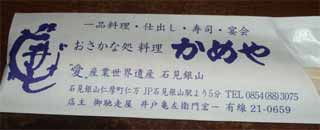 一品料理・仕出し・寿司・宴会
おさかな処 料理 かめや
"愛" 産業世界遺産 石見銀山
石見銀山仁摩町仁万 JP石見銀山駅より5分 TEL 0854(88)3075
店主 御馳走屋 井戸亀左衛門宏一 有線 21-0659